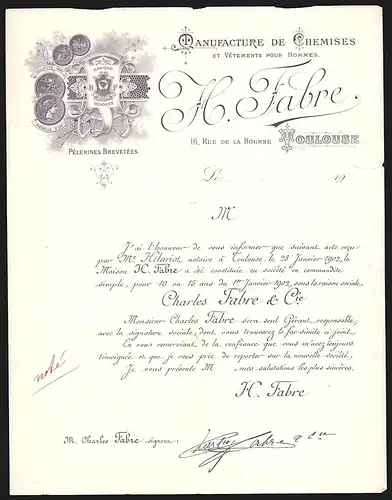 Manufacture de Chemises
et Vêtements pour Hommes.
H. Fabre.
16, Rue de la Bourse Toulouse
Pèlerines Brevetées
Le 19
M
J'ai l'honneur de vous informer que suivant acte reçu
par Me Hilariot notaire à Toulouse, le 28 Janvier 1902, la
Maison H. Fabre a été constituée en société en commandite
simple, pour 10 ou 15 ans du 1er Janvier 1902, sous la raison sociale:
Charles Fabre & Cie
Monsieur Charles Fabre sera seul Gérant responsable,
avec la signature sociale, dont vous trouverez le fac-simile ci-joint.
En vous remerciant de la confiance que vous m'avez toujours
témoignée et que je vous prie de reporter sur la nouvelle société,
Je vous présente M , mes salutations les plus sincères.
H. Fabre
noté
M. Charles Fabre signera:
Charles Fabre & Cie